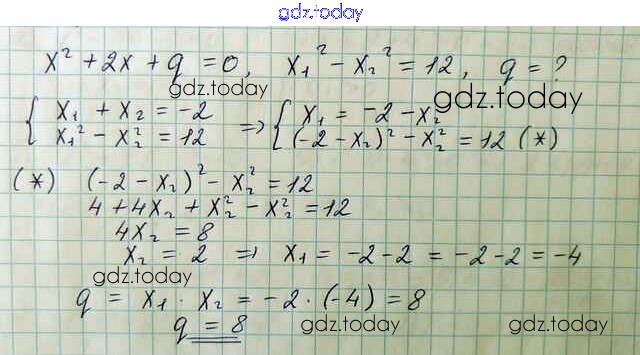 gdz.today
x² + 2x + q = 0, x₁² − x₂² = 12, q = ?
gdz.today gdz.today
{ x₁ + x₂ = −2 => { x₁ = −2 − x₂
x₁² − x₂² = 12 (−2 − x₂)² − x₂² = 12 (*)
(*) (−2 − x₂)² − x₂² = 12
4 + 4x₂ + x₂² − x₂² = 12
4x₂ = 8
x₂ = 2 => x₁ = −2 − 2 = −2 − 2 = −4
gdz.today
q = x₁ · x₂ = −2 · (−4) = 8
q = 8
gdz.today gdz.today